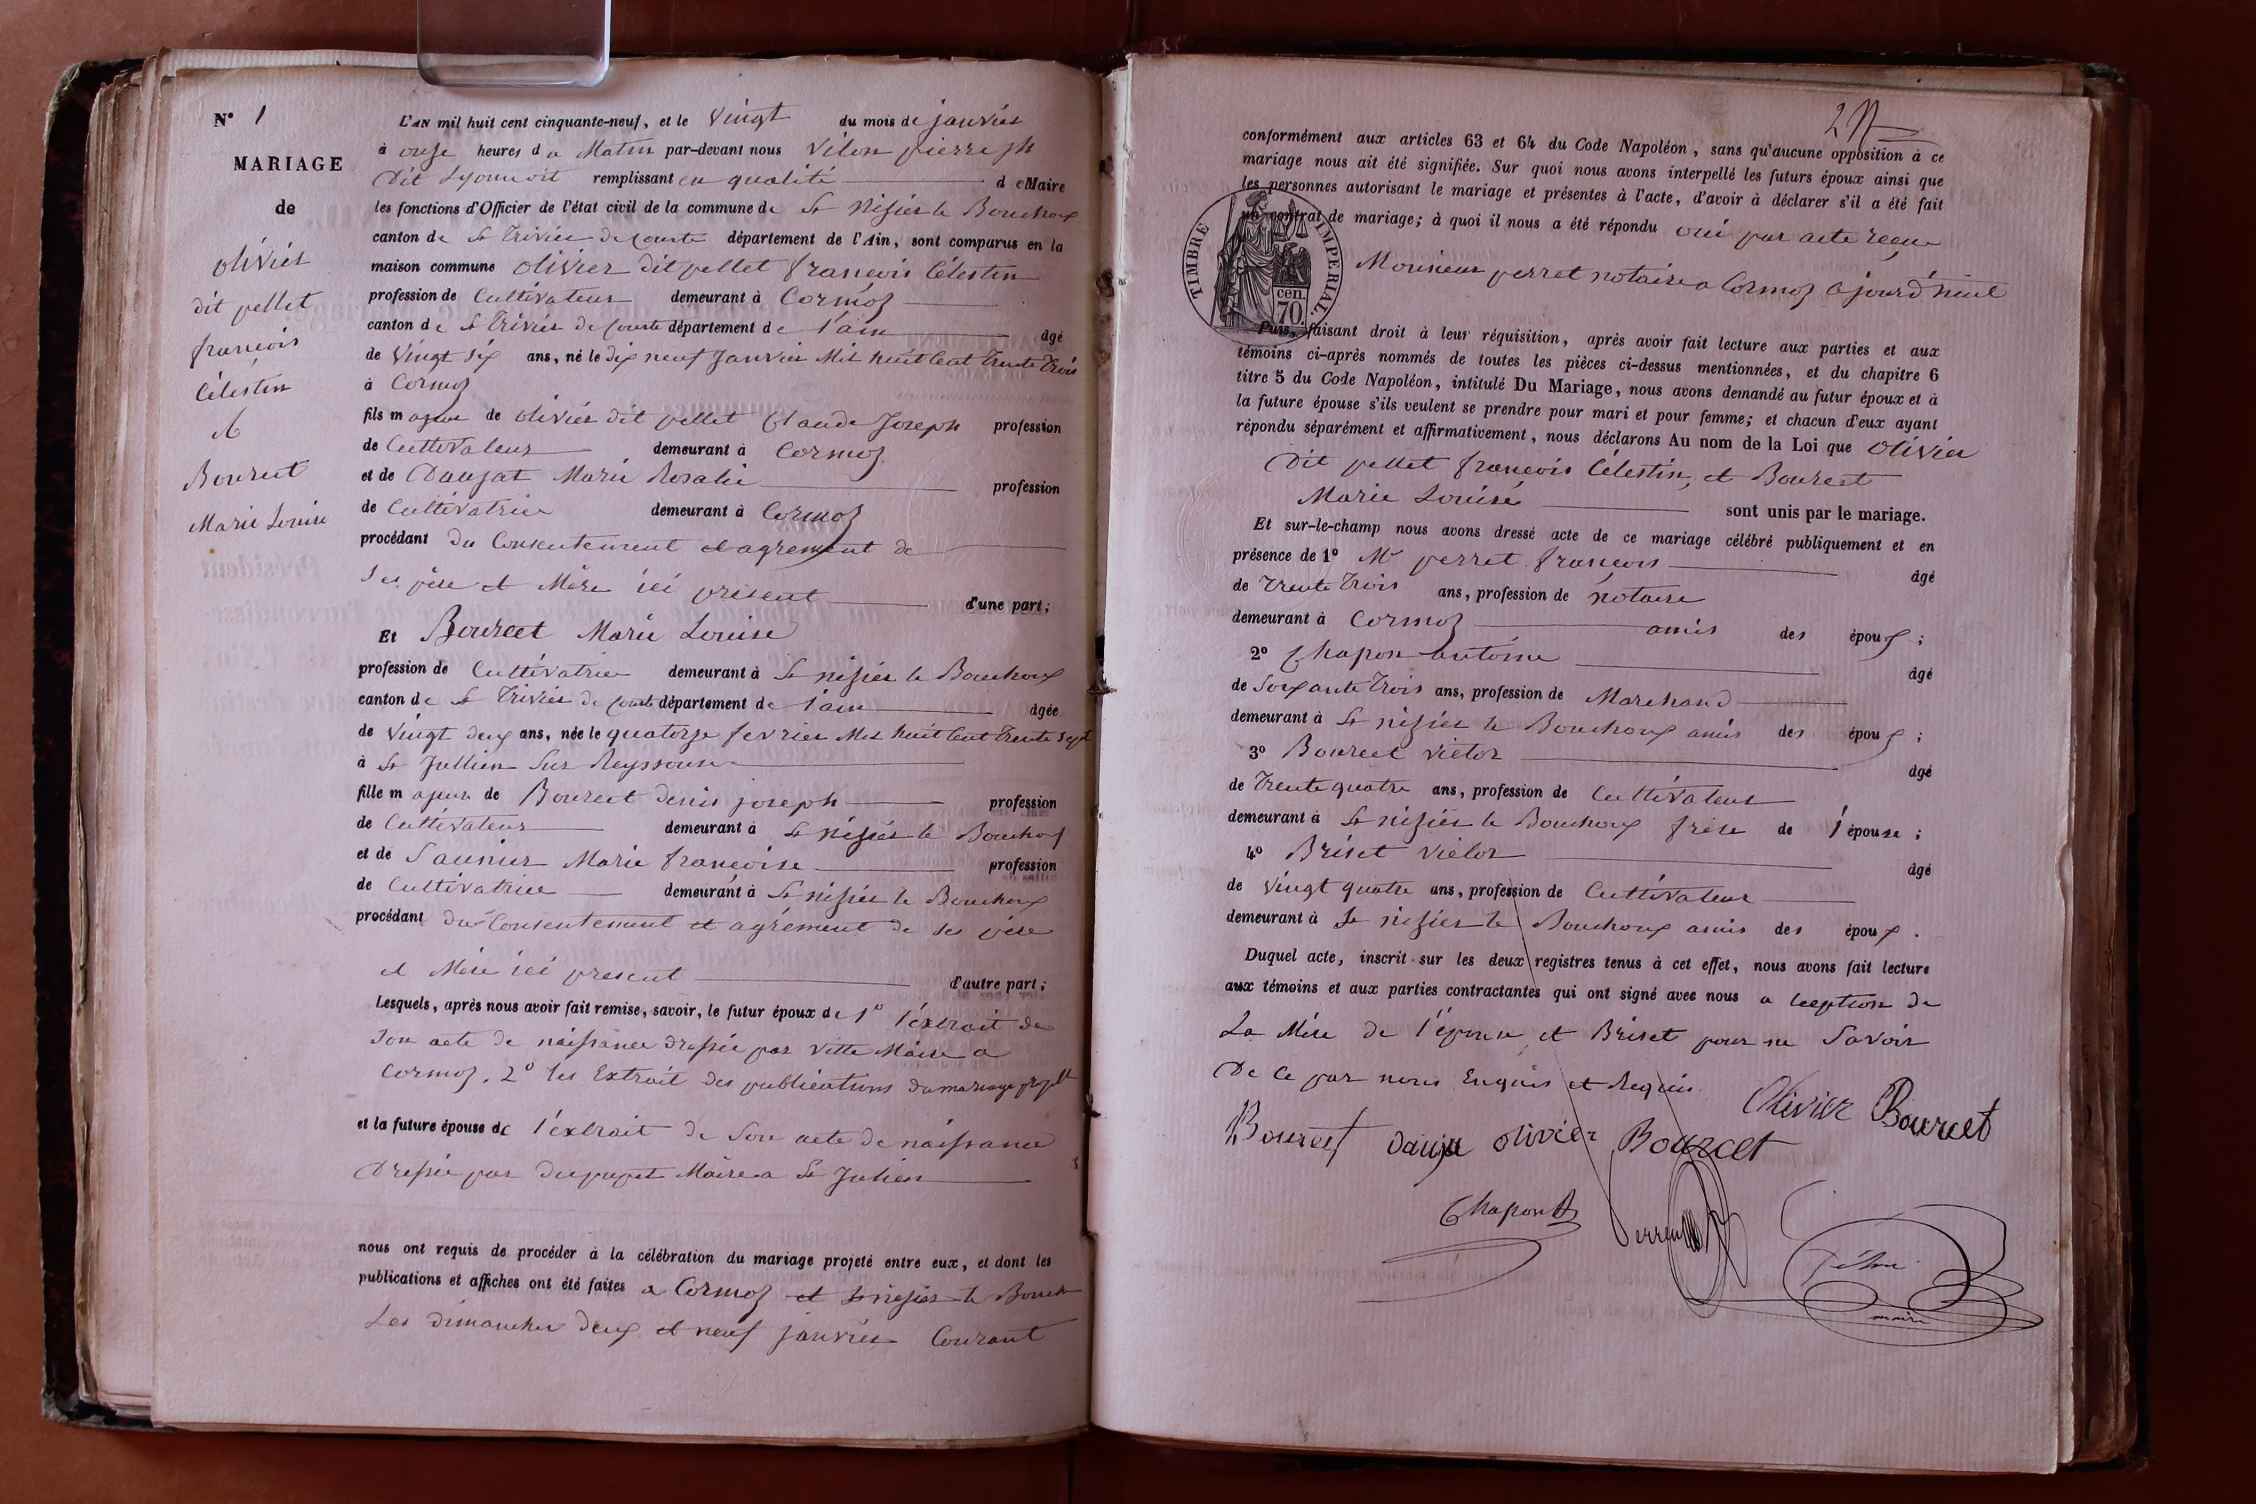 N° 1
MARIAGE
de
Olivier
dit pellet
françois
Célestin
et
Bourcet
Marie Louise
L'AN mil huit cent cinquante-neuf, et le Vingt du mois de janvier
à onze heures du Matin par-devant nous Vilon pierre jh
Dit Lyonnoit remplissant en qualité de Maire
les fonctions d'Officier de l'état civil de la commune de St Nisier le Bouchoux
canton de St Trivier de Courte département de l'Ain, sont comparus en la
maison commune Olivier dit pellet françois Célestin
profession de Cultivateur demeurant à Cormoz
canton de St Trivier de Courte département de l'ain âgé
de Vingt Six ans, né le Dix neuf Janvier Mil huit Cent trente trois
à Cormoz
fils majeur de Olivier dit pellet Claude Joseph profession
de Cultivateur demeurant à Cormoz
et de Daujat Marie Rosalie profession
de Cultivatrice demeurant à Cormoz
procédant du Consentement et agrement de
Ses père et Mère ici présent d'une part;
Et Bourcet Marie Louise
profession de Cultivatrice demeurant à St nisier le Bouchoux
canton de St Trivier de Courte département de l'ain âgée
de Vingt deux ans, née le quatorze fevrier Mil huit Cent Trente Sept
à St Jullien Sur Reyssouse
fille majeure de Bourcet denis joseph profession
de Cultivateur demeurant à St nisier le Bouchoux
et de Saunier Marie françoise profession
de Cultivatrice demeurant à St nisier le Bouchoux
procédant du Consentement et agrément de ses père
et Mère ici présent d'autre part;
Lesquels, après nous avoir fait remise, savoir, le futur époux de 1° l'éxtrait de
Son acte de naissance dressée par Vitte Maire a
Cormoz. 2° les Extrait des publications du mariage projetté
et la future épouse de l'éxtrait de Son acte de naissance
Dressée par dupupet Maire a St Julien
nous ont requis de procéder à la célébration du mariage projeté entre eux, et dont les
publications et affiches ont été faites a Cormoz et St nisier le Bouch
Les dimanches deux et neuf janvier Courant
conformément aux articles 63 et 64 du Code Napoléon, sans qu'aucune opposition à ce
mariage nous ait été signifiée. Sur quoi nous avons interpellé les futurs époux ainsi que
les personnes autorisant le mariage et présentes à l'acte, d'avoir à déclarer s'il a été fait
un contrat de mariage; à quoi il nous a été répondu oui par acte reçu
TIMBRE IMPERIAL.
cen.
70.
Monsieur perret notaire a Cormoz ajourd'hui
Puis, faisant droit à leur réquisition, après avoir fait lecture aux parties et aux
témoins ci-après nommés de toutes les pièces ci-dessus mentionnées, et du chapitre 6
titre 5 du Code Napoléon, intitulé Du Mariage, nous avons demandé au futur époux et à
la future épouse s'ils veulent se prendre pour mari et pour femme; et chacun d'eux ayant
répondu séparément et affirmativement, nous déclarons Au nom de la Loi que Olivier
Dit pellet françois Célestin, et Bourcet
Marie Louise sont unis par le mariage.
Et sur-le-champ nous avons dressé acte de ce mariage célébré publiquement et en
présence de 1° Mr perret françois âgé
de Trente Trois ans, profession de notaire
demeurant à Cormoz amis des époux;
2° Chapon antoine âgé
de Soixante Trois ans, profession de Marchand
demeurant à St nisier le Bouchoux amis des époux;
3° Bourcet victor âgé
de Trente quatre ans, profession de Cultivateur
demeurant à St nisier le Bouchoux frère de l'épouse;
4° Briset victor âgé
de Vingt quatre ans, profession de Cultivateur
demeurant à St nisier le Bouchoux amis des époux.
Duquel acte, inscrit sur les deux registres tenus à cet effet, nous avons fait lecture
aux témoins et aux parties contractantes qui ont signé avec nous a lception de
La Mère de l'épouse et Briset pour ne Savoir
De Ce par nous Enquis et Requis.
Olivier Bourcet
Bourcet Olivier Bourcet
Chapon
maire